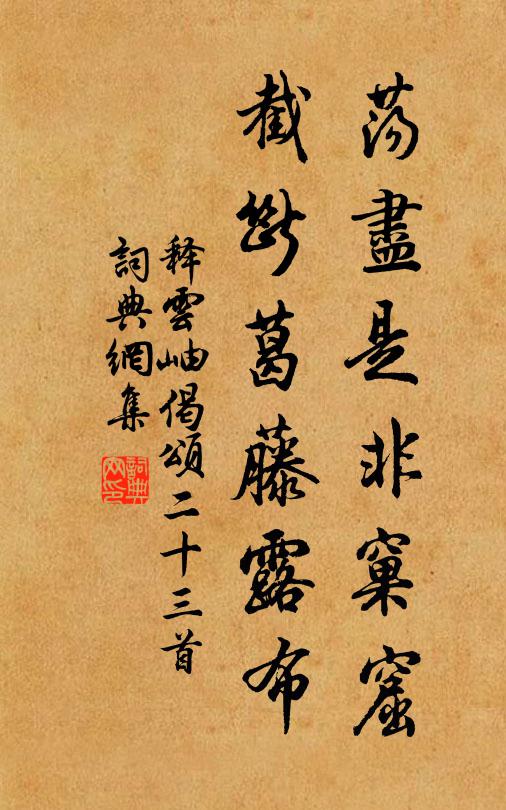 荡盡是非窠窟
截斷葛藤露布
释雲岫偈頌二十三首
詞典網集
詞典
网印